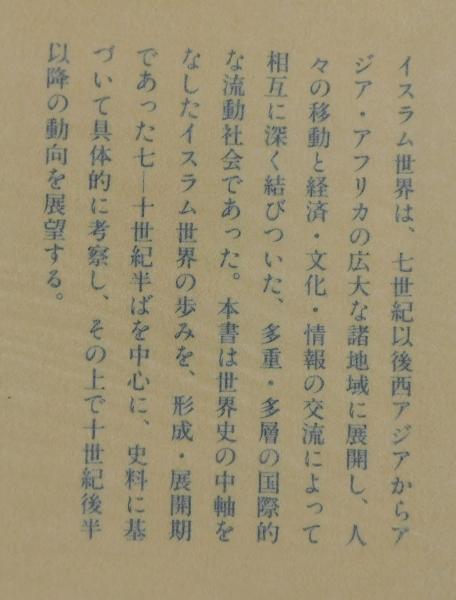 イスラム世界は、七世紀以後西アジアからア
ジア・アフリカの広大な諸地域に展開し、人
々の移動と経済・文化・情報の交流によって
相互に深く結びついた、多重・多層の国際的
な流動社会であった。本書は世界史の中軸を
なしたイスラム世界の歩みを、形成・展開期
であった七―十世紀半ばを中心に、史料に基
づいて具体的に考察し、その上で十世紀後半
以降の動向を展望する。